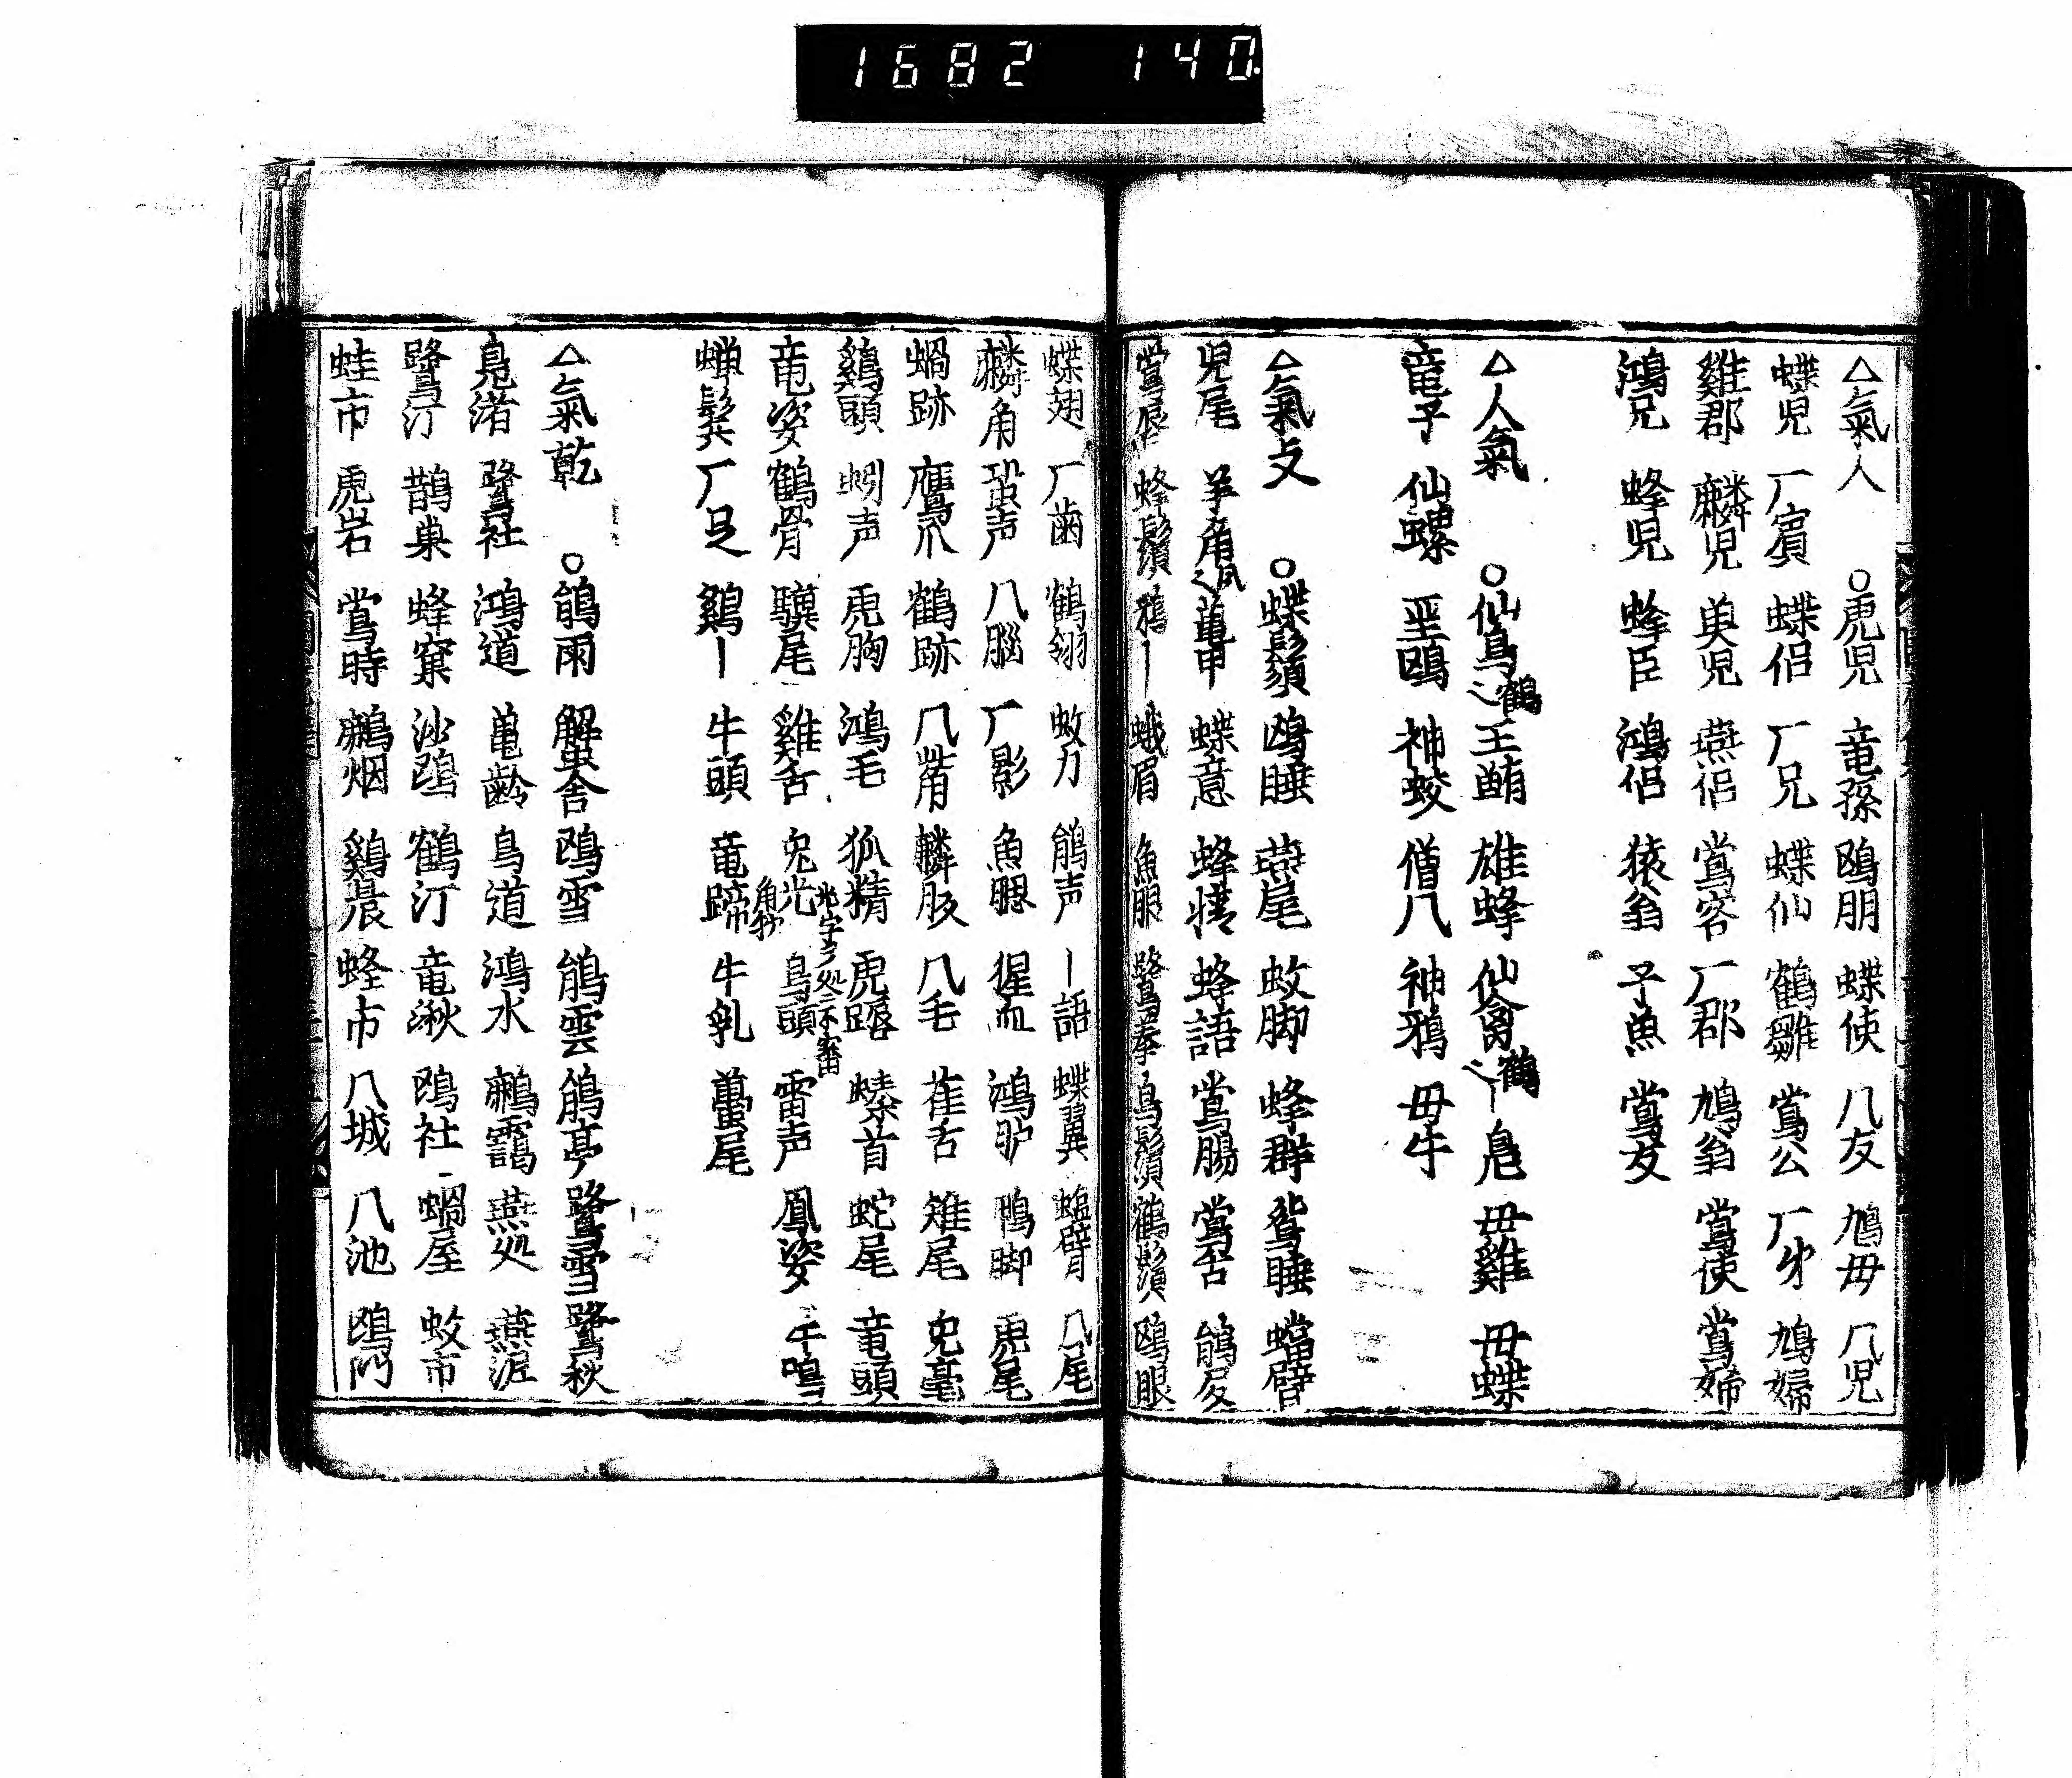 1682 140
△氣人 ○虎児 竜孫 鴎朋 蝶使 八友 鳩毋 八児
蝶児 厂賓 蝶侣 厂兄 蝶仙 鶴雛 鴬公 厂弟 鳩婦
雞郡 麟児 燕侣 鴬客 厂郡 鳩翁 鴬使 鴬婦
鴻兄 蜂児 蜂臣 鴻侣 猿翁 子魚 鴬友
△人氣 ○仙鳥 鶴 王鮪 雄蜂 仙禽 鶴 毋雞 毋蝶
竜子 仙螺 聖鴎 神蛟 僧八 神鴉 毋牛
△氣攴 ○蝶鬚 鴎睡 燕尾 蚊脚 蜂群 鴛睡 蟷臂
児尾 羊角 蝶意 蜂情 蜂語 鴬腸 鴬舌
蜂鬚 鴉〡 蛾眉 魚眼 鷺拳 鳥鬚 鶴鬚 鴎眼
蝶翅 厂歯 鶴翎 蚊力 鵑声 〡語 蝶翼 八尾
麟角 蛩声 八腦 厂影 魚腮 猩血 鴨脚 虎尾
蝸跡 鷹爪 鶴跡 八觜 八毛 雀舌 雉尾 兎毫
鷄頭 蚓声 虎胸 鴻毛 狐精 虎蹈 螓首 蛇尾 竜頭
竜姿 鶴骨 驥尾 雞舌 兎光 鳥頭 雷声 鳳姿 牛鳴
蝉鬓 厂足 鷄〡 牛頭 竜蹄 牛乳 蠆尾
△氣乾 ○鵑雨 蟹舎 鴎雪 鵑雲 鵑亭 鷺雪 鷺秋
鳧渚 鷺社 鴻道 亀齢 鳥道 鴻水 鷓靄 燕処 燕泥
鷺汀 鵲巣 蜂窠 沙鴎 鶴汀 竜湫 鴎社 蝸屋 蚊市
蛙市 虎岩 鴬時 鷓烟 鷄晨 蜂市 八城 八池 鴎門